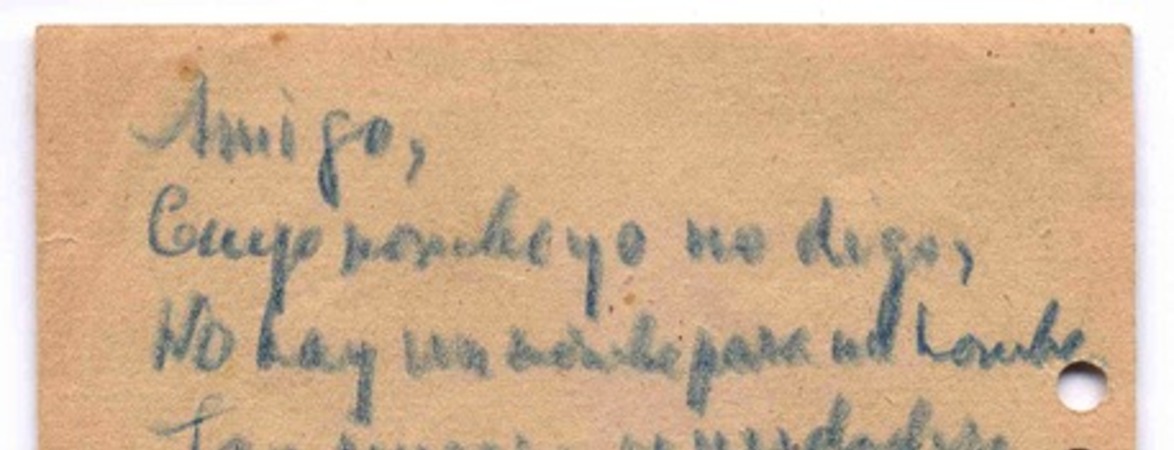 Amigo,
Cuyo nombre yo no digo,
No hay un nombre para un hombre